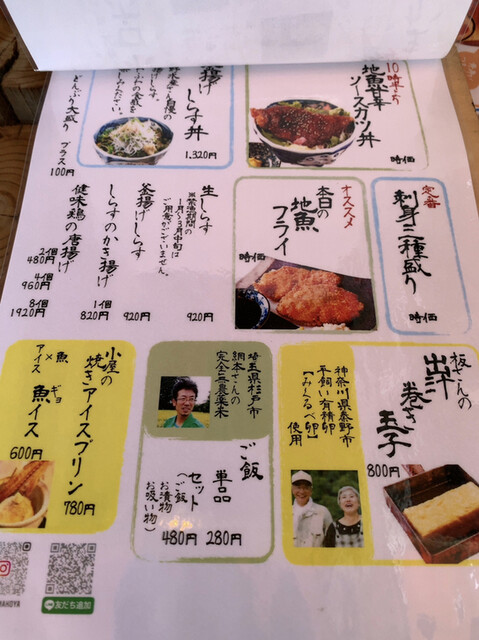 10時半から
地魚
ソースカツ丼
時価
釜揚げ
しらす丼
1,320円
どんぶり大盛り プラス
100円
定番
刺身三種盛り
時価
オススメ
本日の
地魚
フライ
時価
生しらす
※禁漁期間の
1月〜3月中旬は
ご用意がございません。
920円
釜揚げしらす
920円
しらすのかき揚げ
1個
820円
健味鶏の唐揚げ
2個
480円
4個
960円
8個
1920円
板さんの
出汁
巻き
玉子
800円
神奈川県秦野市
平飼い有精卵
【みくるべ卵】
使用
埼玉県杉戸市
網本さんの
完全無農薬米
ご飯
単品
280円
セット
(ご飯
お漬物
お吸い物)
480円
小屋の
焼きアイスプリン
780円
魚
×
アイス
魚イス
ギョ
600円
友だち追加